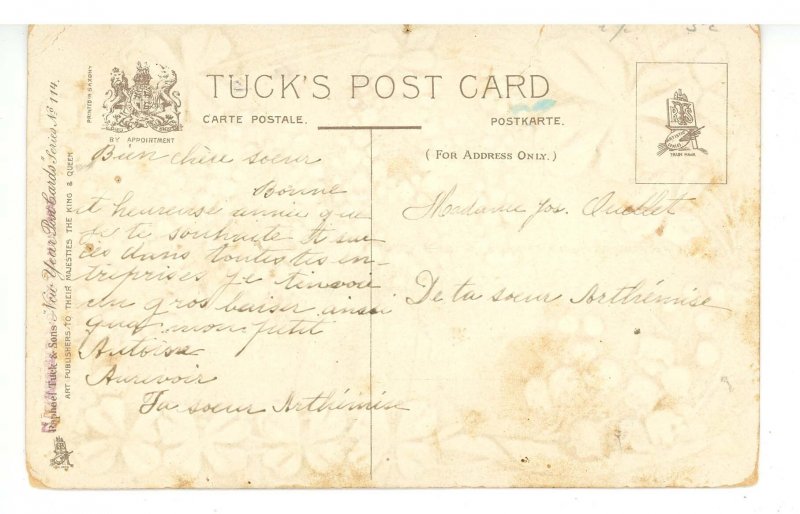 TUCK'S POST CARD
CARTE POSTALE.
POSTKARTE.
BY APPOINTMENT
(FOR ADDRESS ONLY.)
PRINTED IN SAXONY
Raphael Tuck & Sons' "New Year Post Cards" Series No 114.
ART PUBLISHERS TO THEIR MAJESTIES THE KING & QUEEN
TRADE MARK
Bien chère soeur
Bonne
et heureuse année que
je te souhaite et suc
cès dans toutes tes en-
treprises je t'envoie
un gros baiser ainsi
que mon petit
Antoine
Aurevoir
Ta soeur Arthémise
Madame Jos. Ouellet
De ta soeur Arthémise